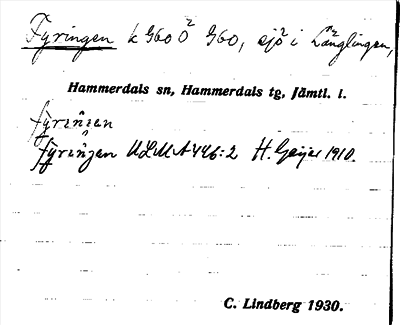 Fyringen k 960 Ö 960, sjö i Långlingen,
Hammerdals sn, Hammerdals tg, Jämtl. l.
ULMA 446:2 H. Geijer 1910.
C. Lindberg 1930.